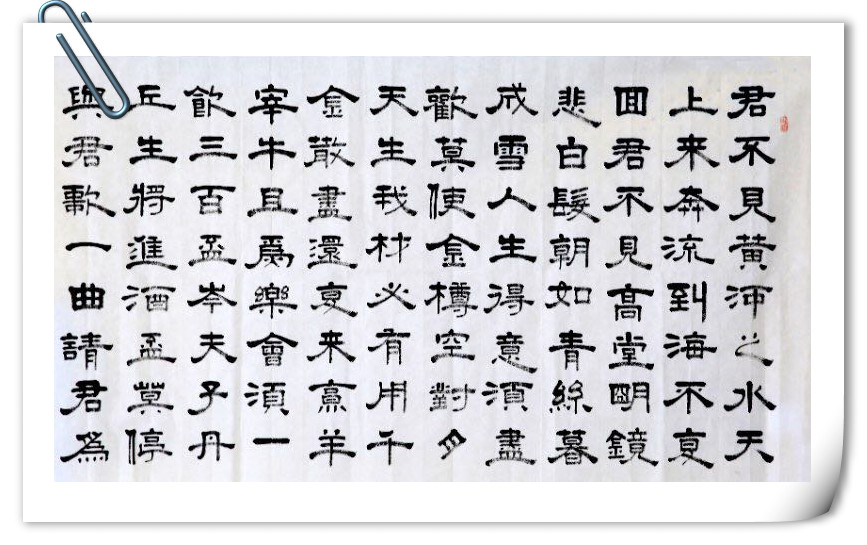 君不見黃河之水天
上来奔流到海不复
回君不見高堂明鏡
悲白髮朝如青絲暮
成雪人生得意須盡
歡莫使金樽空對月
天生我材必有用千
金散盡還复来烹羊
宰牛且爲樂會須一
飲三百盃岑夫子丹
丘生將進酒盃莫停
與君歌一曲請君爲